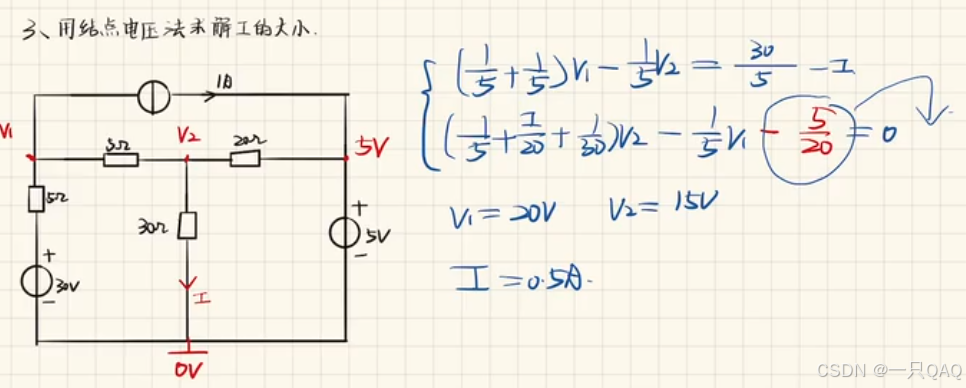 3、用结点电压法求解I的大小.
1A
V1
5Ω
V2
20Ω
5V
5Ω
30Ω
+
5V
-
+
30V
-
I
0V
(1/5+1/5)V1-1/5V2=30/5-I
(1/5+I/20+1/30)V2-1/5V1-5/20=0
V1=20V V2=15V
I=0.5A.
CSDN @一只QAQ